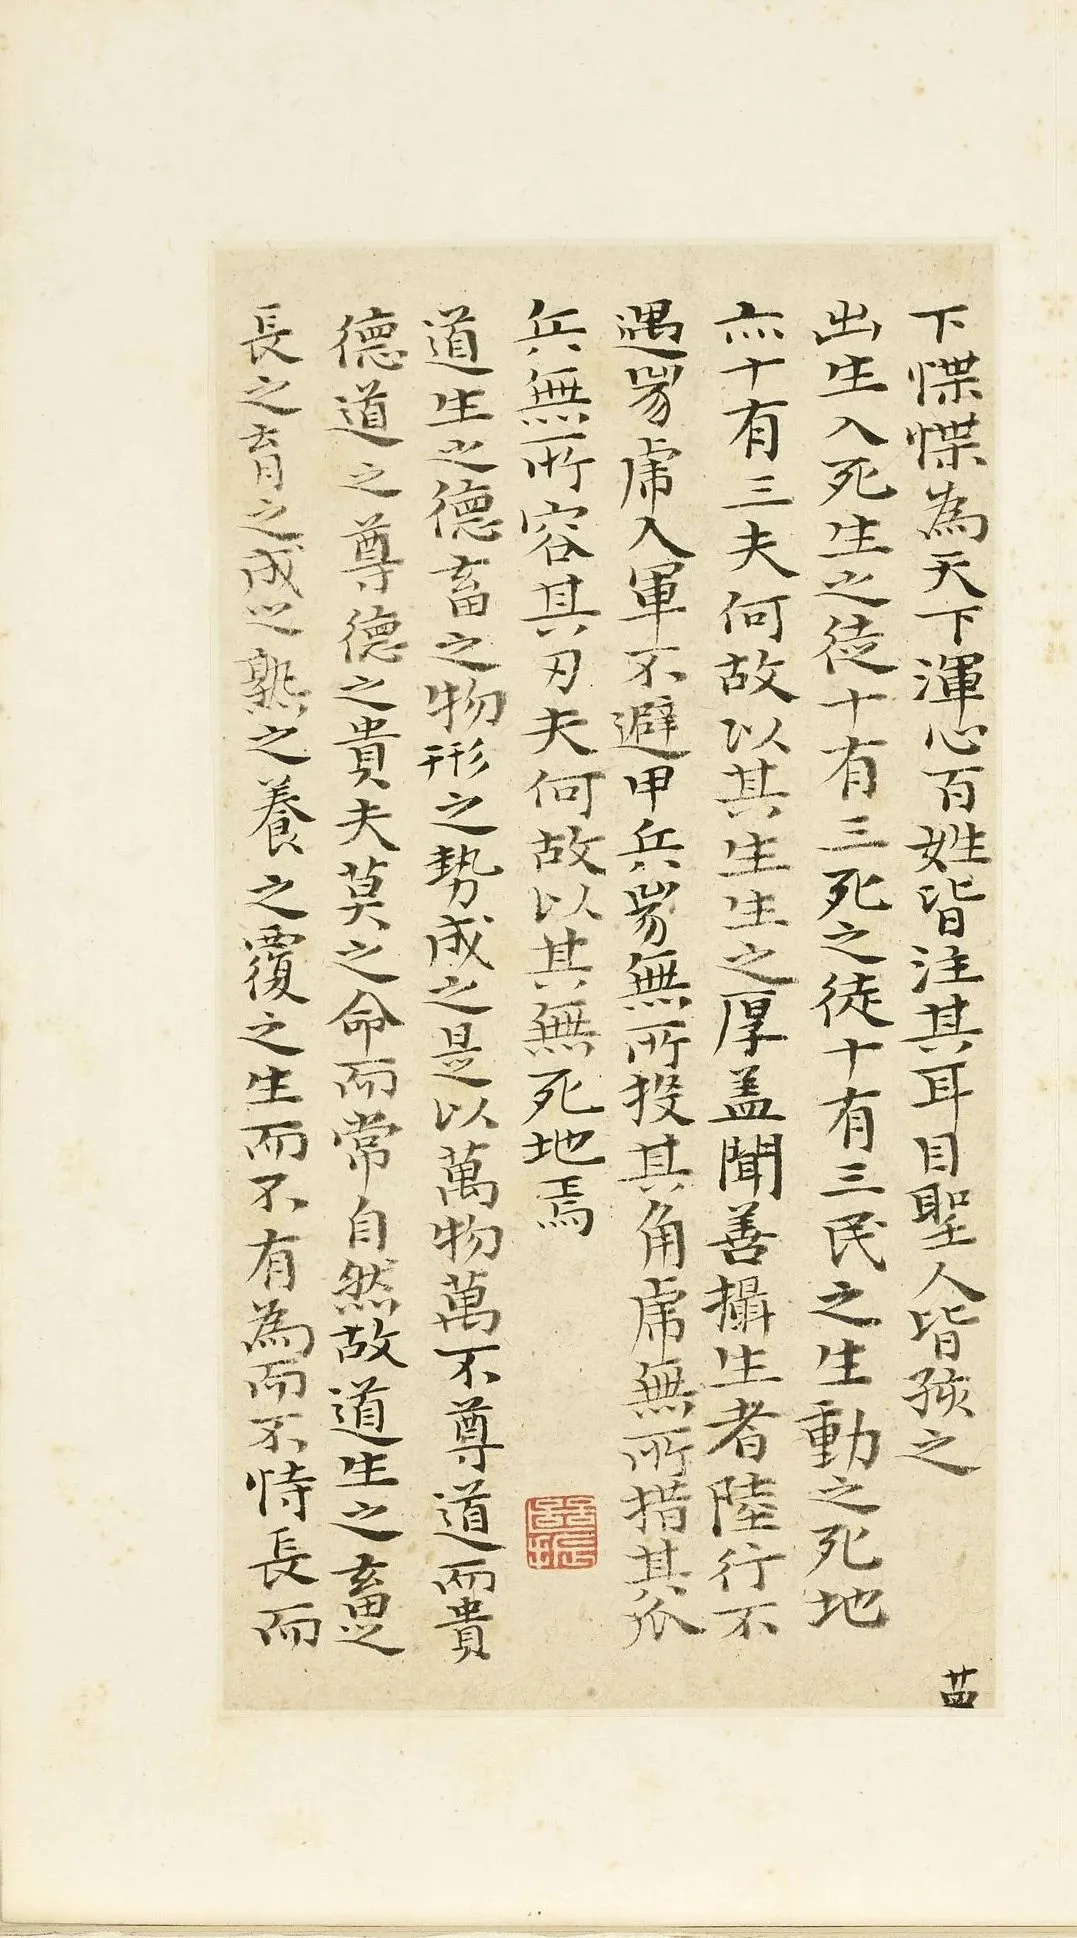 下惵惵為天下渾心百姓皆注其耳目聖人皆孩之
出生入死生之徒十有三死之徒十有三民之生動之死地
亦十有三夫何故以其生生之厚盖聞善攝生者陸行不
遇兕虎入軍不避甲兵兕無所投其角虎無所措其爪
兵無所容其刃夫何故以其無死地焉
道生之德畜之物形之勢成之是以萬物萬不尊道而貴
德道之尊德之貴夫莫之命而常自然故道生之畜之
長之育之成之熟之養之覆之生而不有為而不恃長而
廿四